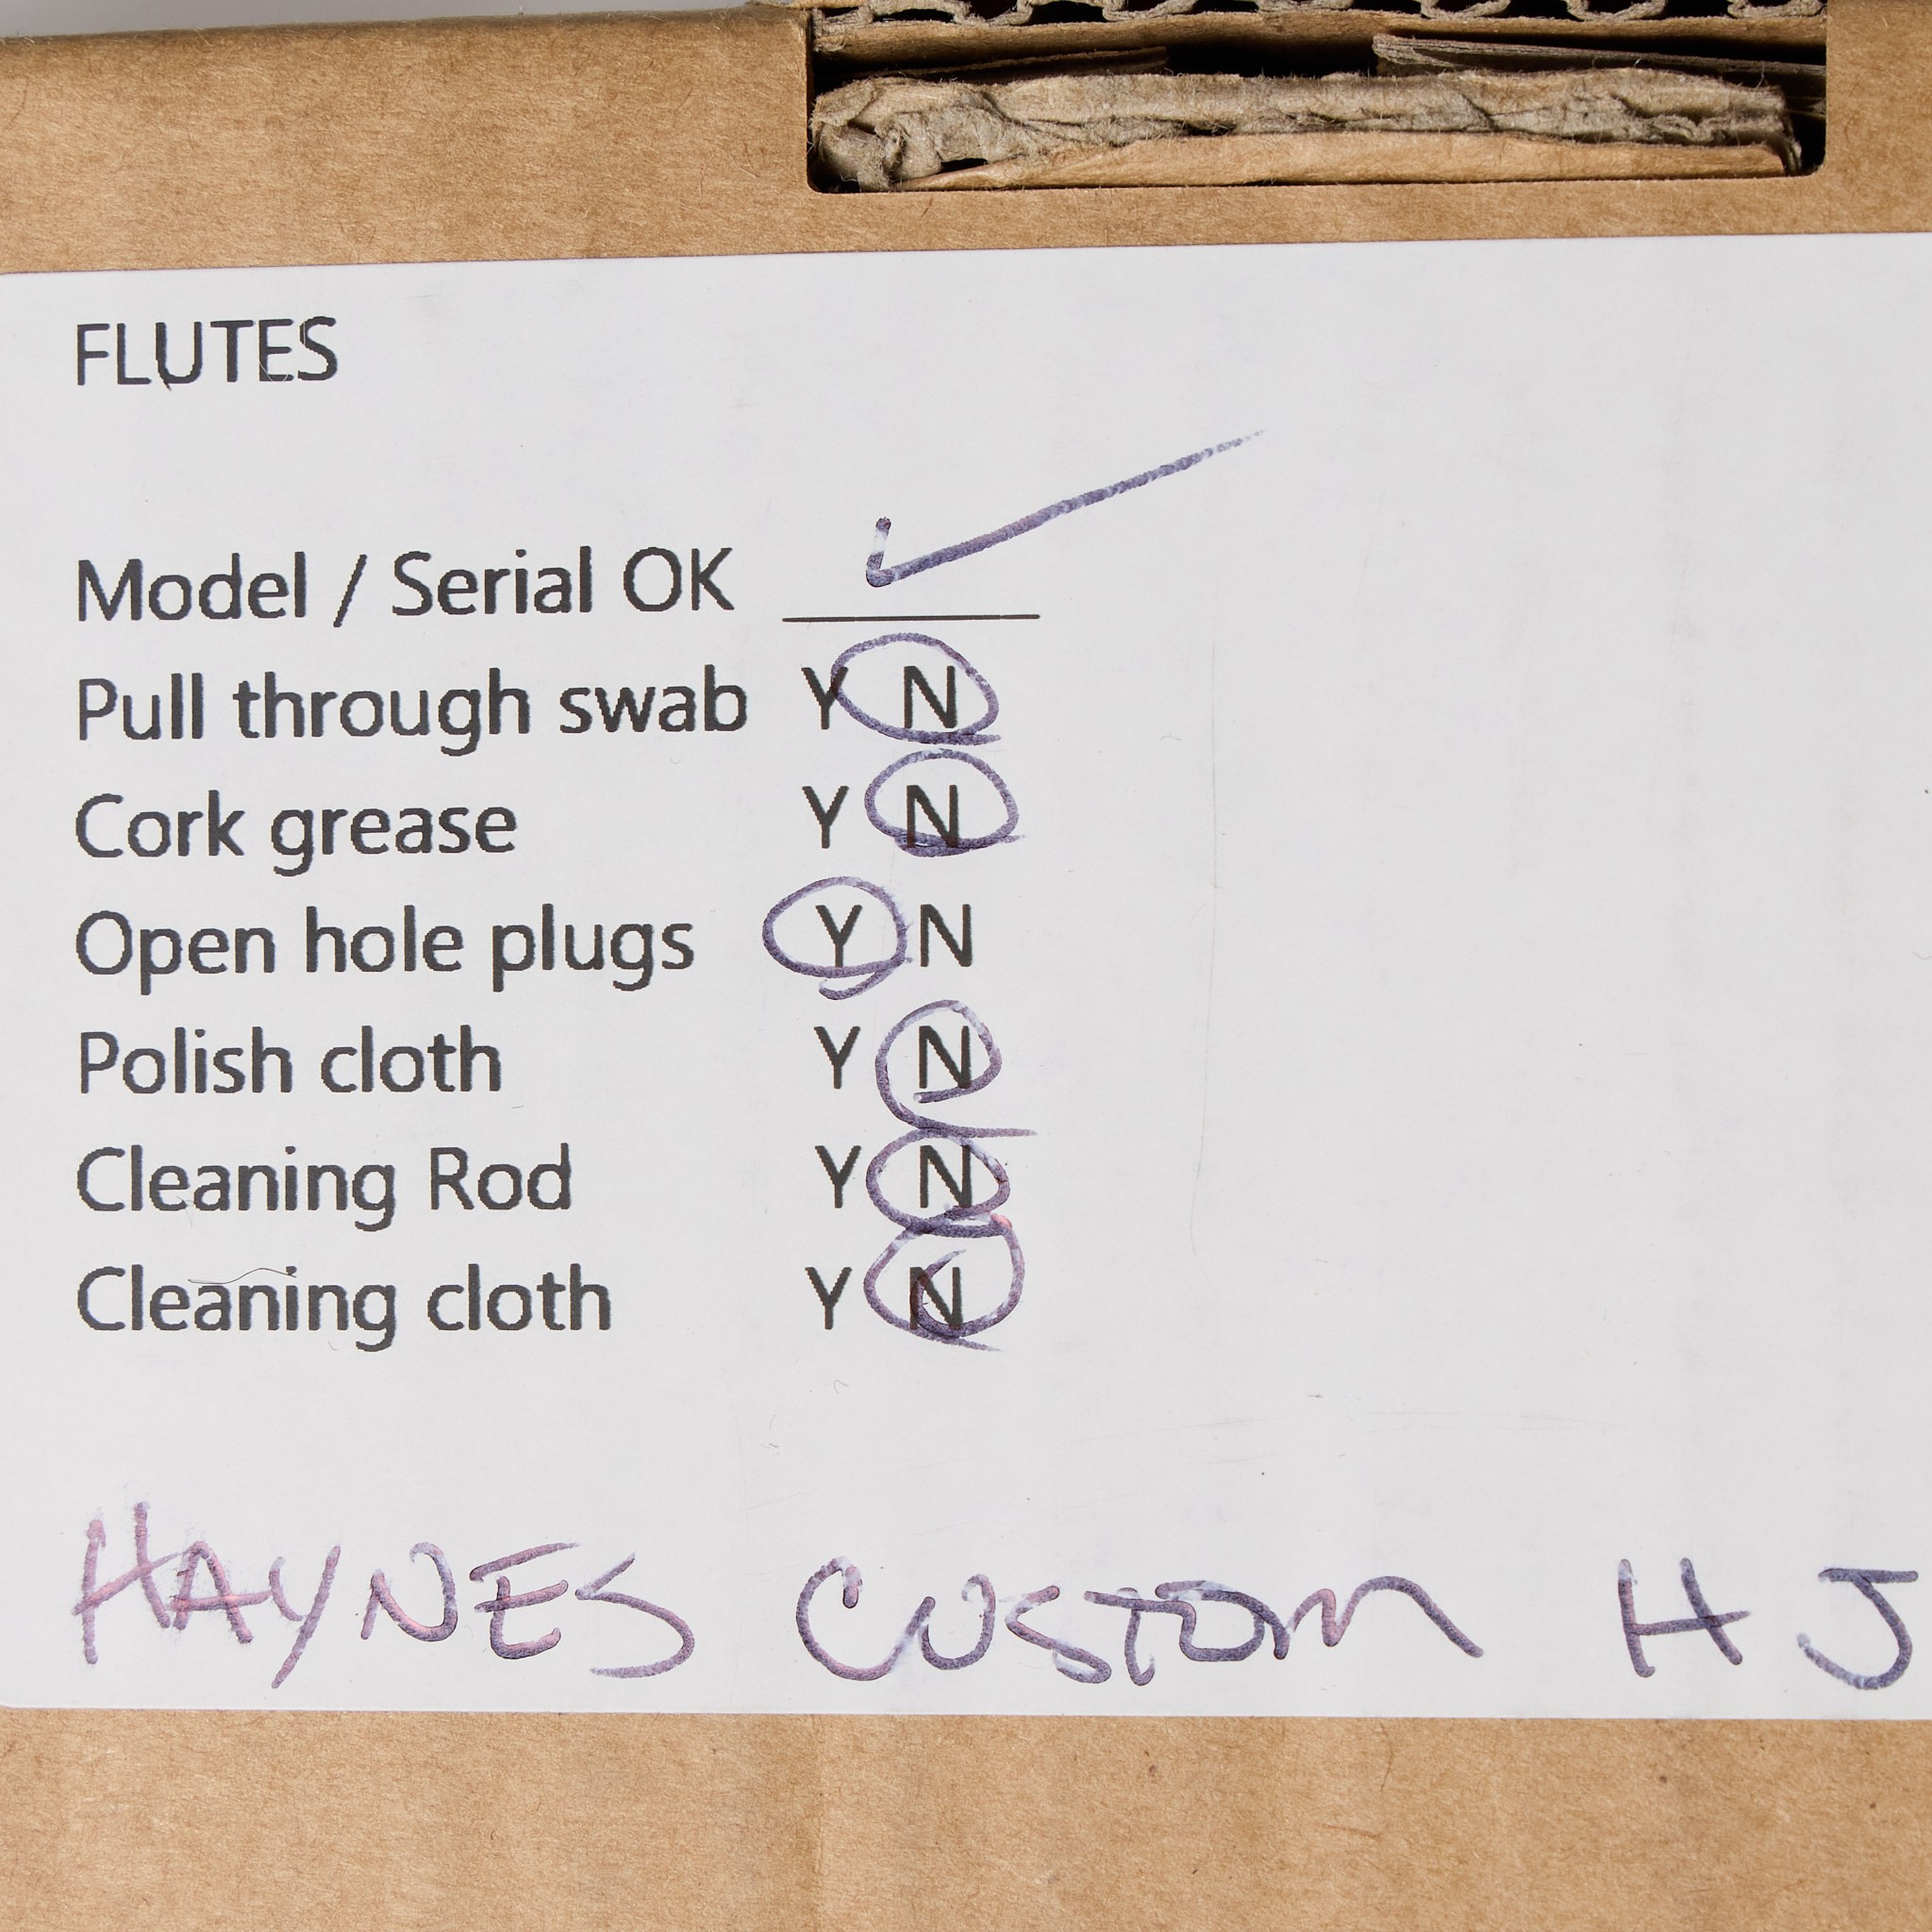 FLUTES
Model / Serial OK ✓
Pull through swab Y N
Cork grease Y N
Open hole plugs Y N
Polish cloth Y N
Cleaning Rod Y N
Cleaning cloth Y N
HAYNES CUSTOM HJ